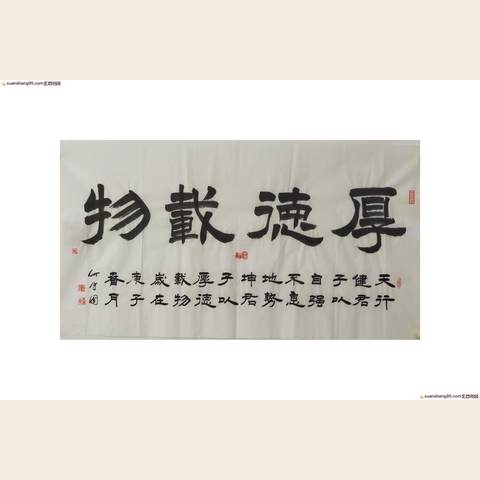 xuanshang95.com
厚德載物
天行
健君
子以
自强
不息
地勢
坤君
子以
厚德
載物
歲在
庚子
春月
xuanshang95.com